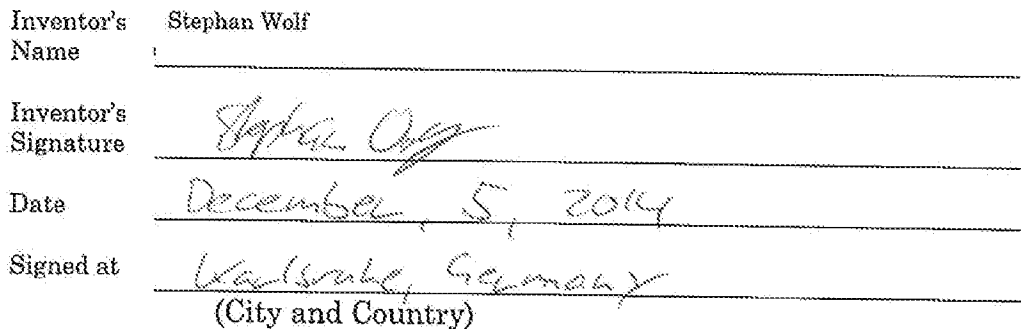 Inventor's Name Stephan Wolf
Inventor's Signature Stephan
Date December, 5, 2014
Signed at Karlsruhe, Germany
(City and Country)